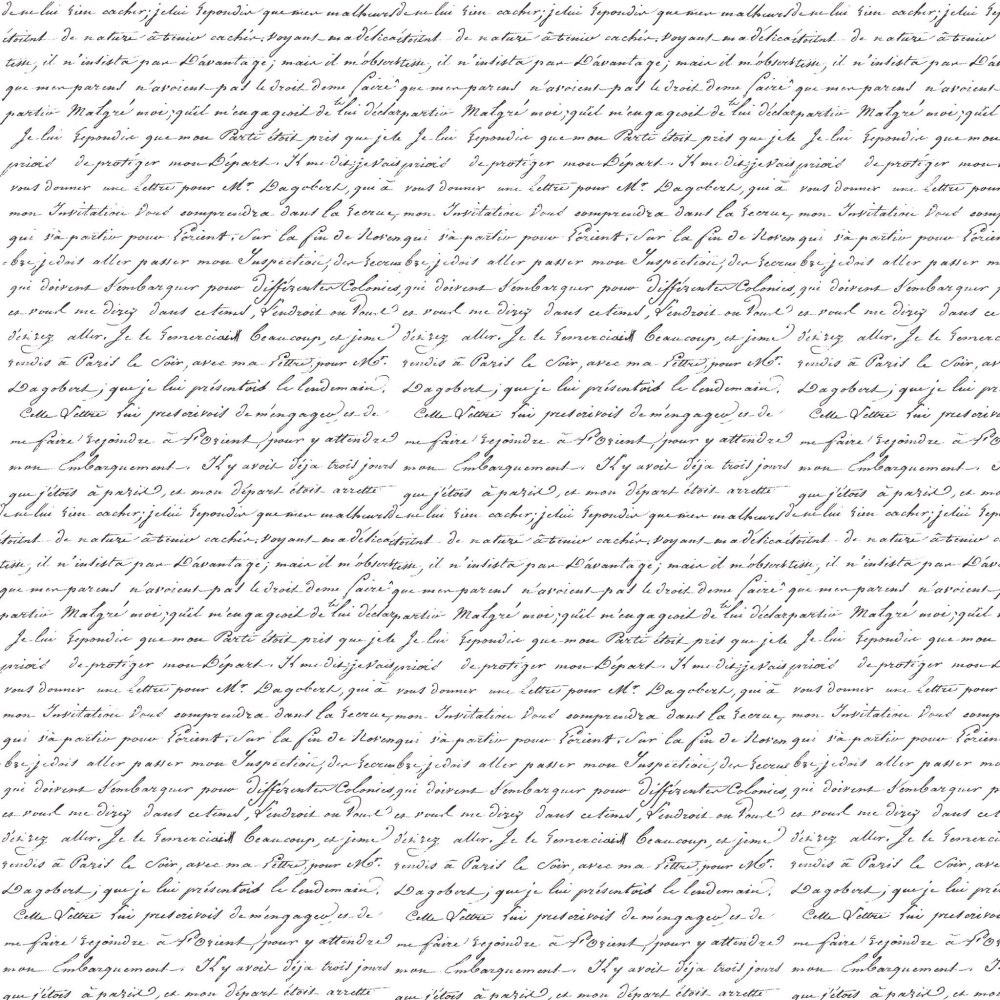 de ne lui rien cacher; je lui repondis que mes malheurs de ne lui rien cacher; je lui repondis que mes malheurs de ne lui rien cacher; je lui
étoient de nature à tenir cachés. voyant ma délica étoient de nature à tenir cachés. voyant ma délica étoient de nature à tenir
tesse, il n'insista pas d'avantage; mais il m'observa tesse, il n'insista pas d'avantage; mais il m'observa tesse, il n'insista pas
que mes parens n'avoient pas le droit de me faire que mes parens n'avoient pas le droit de me faire que mes parens n'avoient
partir Malgré moi; qu'il m'engageoit de te lui déclar partir Malgré moi; qu'il m'engageoit de te lui déclar partir Malgré moi; qu'il
Je lui repondis que mon Parti étoit pris que je le Je lui repondis que mon Parti étoit pris que je le Je lui repondis que mon
priois de protéger mon Départ. Il me dit; je vais priois de protéger mon Départ. Il me dit; je vais priois de protéger mon
vous donner une Lettre pour Mr. Dagobert, qui à vous donner une Lettre pour Mr. Dagobert, qui à vous donner une Lettre pour
mon Invitation Vous comprendra dans la recrue, mon Invitation Vous comprendra dans la recrue, mon Invitation Vous
qui va partir pour l'orient. Sur la fin de Novem qui va partir pour l'orient. Sur la fin de Novem qui va partir pour
bre, je dois aller passer mon Inspection, des recrues bre, je dois aller passer mon Inspection, des recrues bre, je dois aller passer
qui doivent s'embarquer pour différentes Colonies, qui doivent s'embarquer pour différentes Colonies, qui doivent s'embarquer
et vous me direz dans ce tems, l'endroit ou Vous et vous me direz dans ce tems, l'endroit ou Vous et vous me direz dans
désirez aller. Je le remerciais Beaucoup, et je me désirez aller. Je le remerciais Beaucoup, et je me désirez aller. Je le
rendis à Paris le Soir, avec ma Lettre, pour Mr. rendis à Paris le Soir, avec ma Lettre, pour Mr. rendis à Paris le Soir,
Dagobert; que je lui présentois le lendemain. Dagobert; que je lui présentois le lendemain. Dagobert; que je lui
Cette Lettre lui prescrivoit de m'engager, et de Cette Lettre lui prescrivoit de m'engager, et de Cette Lettre lui
me faire rejoindre à l'Orient, pour y attendre me faire rejoindre à l'Orient, pour y attendre me faire rejoindre à
mon Embarquement. Il y avoit déja trois jours mon Embarquement. Il y avoit déja trois jours mon Embarquement.
que j'étois à paris, et mon départ étoit arretté que j'étois à paris, et mon départ étoit arretté que j'étois à paris, et
de ne lui rien cacher; je lui repondis que mes malheurs de ne lui rien cacher; je lui repondis que mes malheurs de ne lui rien cacher; je lui
étoient de nature à tenir cachés. voyant ma délica étoient de nature à tenir cachés. voyant ma délica étoient de nature à tenir
tesse, il n'insista pas d'avantage; mais il m'observa tesse, il n'insista pas d'avantage; mais il m'observa tesse, il n'insista pas
que mes parens n'avoient pas le droit de me faire que mes parens n'avoient pas le droit de me faire que mes parens n'avoient
partir Malgré moi; qu'il m'engageoit de te lui déclar partir Malgré moi; qu'il m'engageoit de te lui déclar partir Malgré moi; qu'il
Je lui repondis que mon Parti étoit pris que je le Je lui repondis que mon Parti étoit pris que je le Je lui repondis que mon
priois de protéger mon Départ. Il me dit; je vais priois de protéger mon Départ. Il me dit; je vais priois de protéger mon
vous donner une Lettre pour Mr. Dagobert, qui à vous donner une Lettre pour Mr. Dagobert, qui à vous donner une Lettre pour
mon Invitation Vous comprendra dans la recrue, mon Invitation Vous comprendra dans la recrue, mon Invitation Vous
qui va partir pour l'orient. Sur la fin de Novem qui va partir pour l'orient. Sur la fin de Novem qui va partir pour
bre, je dois aller passer mon Inspection, des recrues bre, je dois aller passer mon Inspection, des recrues bre, je dois aller passer
qui doivent s'embarquer pour différentes Colonies, qui doivent s'embarquer pour différentes Colonies, qui doivent s'embarquer
et vous me direz dans ce tems, l'endroit ou Vous et vous me direz dans ce tems, l'endroit ou Vous et vous me direz dans
désirez aller. Je le remerciais Beaucoup, et je me désirez aller. Je le remerciais Beaucoup, et je me désirez aller. Je le
rendis à Paris le Soir, avec ma Lettre, pour Mr. rendis à Paris le Soir, avec ma Lettre, pour Mr. rendis à Paris le Soir,
Dagobert; que je lui présentois le lendemain. Dagobert; que je lui présentois le lendemain. Dagobert; que je lui
Cette Lettre lui prescrivoit de m'engager, et de Cette Lettre lui prescrivoit de m'engager, et de Cette Lettre lui
me faire rejoindre à l'Orient, pour y attendre me faire rejoindre à l'Orient, pour y attendre me faire rejoindre à
mon Embarquement. Il y avoit déja trois jours mon Embarquement. Il y avoit déja trois jours mon Embarquement.
que j'étois à paris, et mon départ étoit arretté que j'étois à paris, et mon départ étoit arretté que j'étois à paris, et